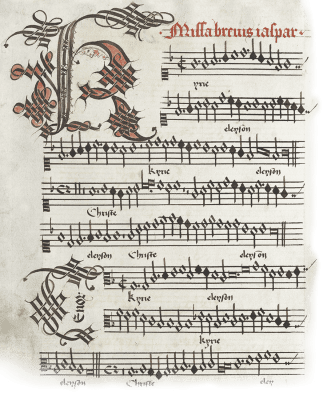 Missa brevis iaspar
K
yrie
eleyson
Kyrie eleyson
Christe
eleyson Christe eleyson
Tenor
Kyrie eleyson
Kyrie
eleyson Christe eley